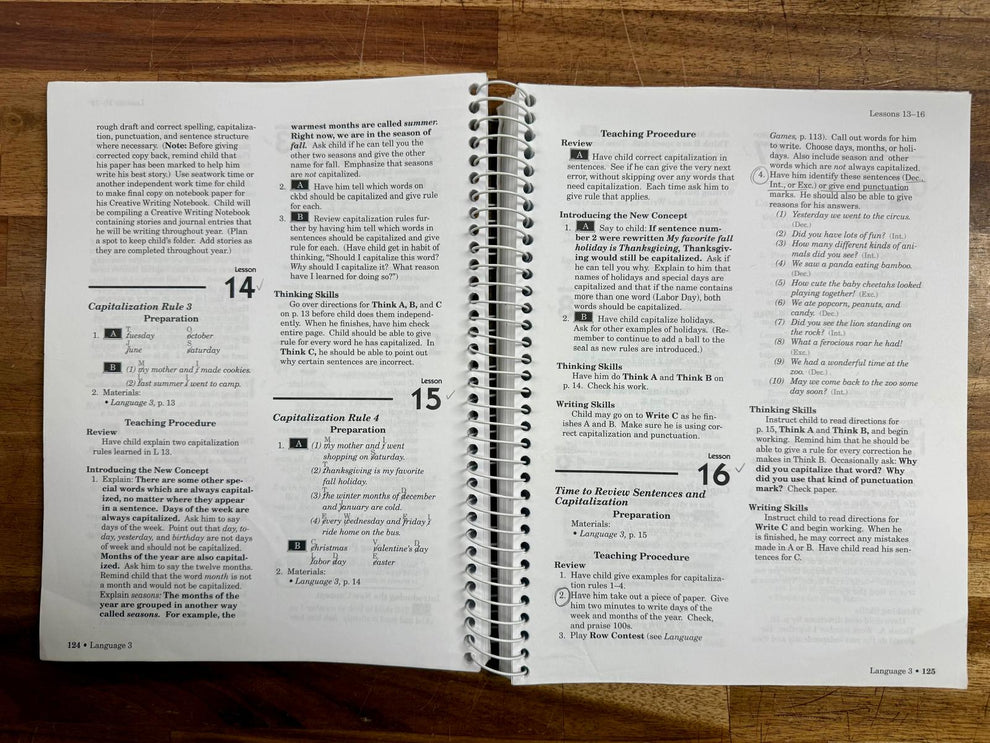 rough draft and correct spelling, capitaliza-
tion, punctuation, and sentence structure
where necessary. (Note: Before giving
corrected copy back, remind child that
his paper has been marked to help him
write his best story.) Use seatwork time or
another independent work time for child
to make final copy on notebook paper for
his Creative Writing Notebook. Child will
be compiling a Creative Writing Notebook
containing stories and journal entries that
he will be writing throughout year. (Plan
a spot to keep child's folder. Add stories as
they are completed throughout year.)
Lesson
14
Capitalization Rule 3
Preparation
T O
1. A tuesday october
J S
june saturday
M I
B (1) my mother and i made cookies.
L I
(2) last summer i went to camp.
2. Materials:
• Language 3, p. 13
Teaching Procedure
Review
Have child explain two capitalization
rules learned in L 13.
Introducing the New Concept
1. Explain: There are some other spe-
cial words which are always capital-
ized, no matter where they appear
in a sentence. Days of the week are
always capitalized. Ask him to say
days of the week. Point out that day, to-
day, yesterday, and birthday are not days
of week and should not be capitalized.
Months of the year are also capital-
ized. Ask him to say the twelve months.
Remind child that the word month is not
a month and would not be capitalized.
Explain seasons: The months of the
year are grouped in another way
called seasons. For example, the
124 • Language 3
warmest months are called summer.
Right now, we are in the season of
fall. Ask child if he can tell you the
other two seasons and give the other
name for fall. Emphasize that seasons
are not capitalized.
2. A Have him tell which words on
ckbd should be capitalized and give rule
for each.
3. B Review capitalization rules fur-
ther by having him tell which words in
sentences should be capitalized and give
rule for each. (Have child get in habit of
thinking, "Should I capitalize this word?
Why should I capitalize it? What reason
have I learned for doing so?")
Thinking Skills
Go over directions for Think A, B, and C
on p. 13 before child does them independ-
ently. When he finishes, have him check
entire page. Child should be able to give
rule for every word he has capitalized. In
Think C, he should be able to point out
why certain sentences are incorrect.
Lesson
15
Capitalization Rule 4
Preparation
M I
1. A (1) my mother and i went
S
shopping on saturday.
T
(2) thanksgiving is my favorite
fall holiday.
T D
(3) the winter months of december
J
and january are cold.
E W F I
(4) every wednesday and friday i
ride home on the bus.
C V D
B christmas valentine's day
L D E
labor day easter
2. Materials:
• Language 3, p. 14
Lessons 13–16
Teaching Procedure
Review
A Have child correct capitalization in
sentences. See if he can give the very next
error, without skipping over any words that
need capitalization. Each time ask him to
give rule that applies.
Introducing the New Concept
1. A Say to child: If sentence num-
ber 2 were rewritten My favorite fall
holiday is Thanksgiving, Thanksgiv-
ing would still be capitalized. Ask if
he can tell you why. Explain to him that
names of holidays and special days are
capitalized and that if the name contains
more than one word (Labor Day), both
words should be capitalized.
2. B Have child capitalize holidays.
Ask for other examples of holidays. (Re-
member to continue to add a ball to the
seal as new rules are introduced.)
Thinking Skills
Have him do Think A and Think B on
p. 14. Check his work.
Writing Skills
Child may go on to Write C as he fin-
ishes A and B. Make sure he is using cor-
rect capitalization and punctuation.
Lesson
16
Time to Review Sentences and
Capitalization
Preparation
Materials:
• Language 3, p. 15
Teaching Procedure
Review
1. Have child give examples for capitaliza-
tion rules 1–4.
2. Have him take out a piece of paper. Give
him two minutes to write days of the
week and months of the year. Check,
and praise 100s.
3. Play Row Contest (see Language
Games, p. 113). Call out words for him
to write. Choose days, months, or holi-
days. Also include season and other
words which are not always capitalized.
4. Have him identify these sentences (Dec.,
Int., or Exc.) or give end punctuation
marks. He should also be able to give
reasons for his answers.
(1) Yesterday we went to the circus.
(Dec.)
(2) Did you have lots of fun? (Int.)
(3) How many different kinds of ani-
mals did you see? (Int.)
(4) We saw a panda eating bamboo.
(Dec.)
(5) How cute the baby cheetahs looked
playing together! (Exc.)
(6) We ate popcorn, peanuts, and
candy. (Dec.)
(7) Did you see the lion standing on
the rock! (Int.)
(8) What a ferocious roar he had!
(Exc.)
(9) We had a wonderful time at the
zoo. (Dec.)
(10) May we come back to the zoo some
day soon? (Int.)
Thinking Skills
Instruct child to read directions for
p. 15, Think A and Think B, and begin
working. Remind him that he should be
able to give a rule for every correction he
makes in Think B. Occasionally ask: Why
did you capitalize that word? Why
did you use that kind of punctuation
mark? Check paper.
Writing Skills
Instruct child to read directions for
Write C and begin working. When he
is finished, he may correct any mistakes
made in A or B. Have child read his sen-
tences for C.
Language 3 • 125